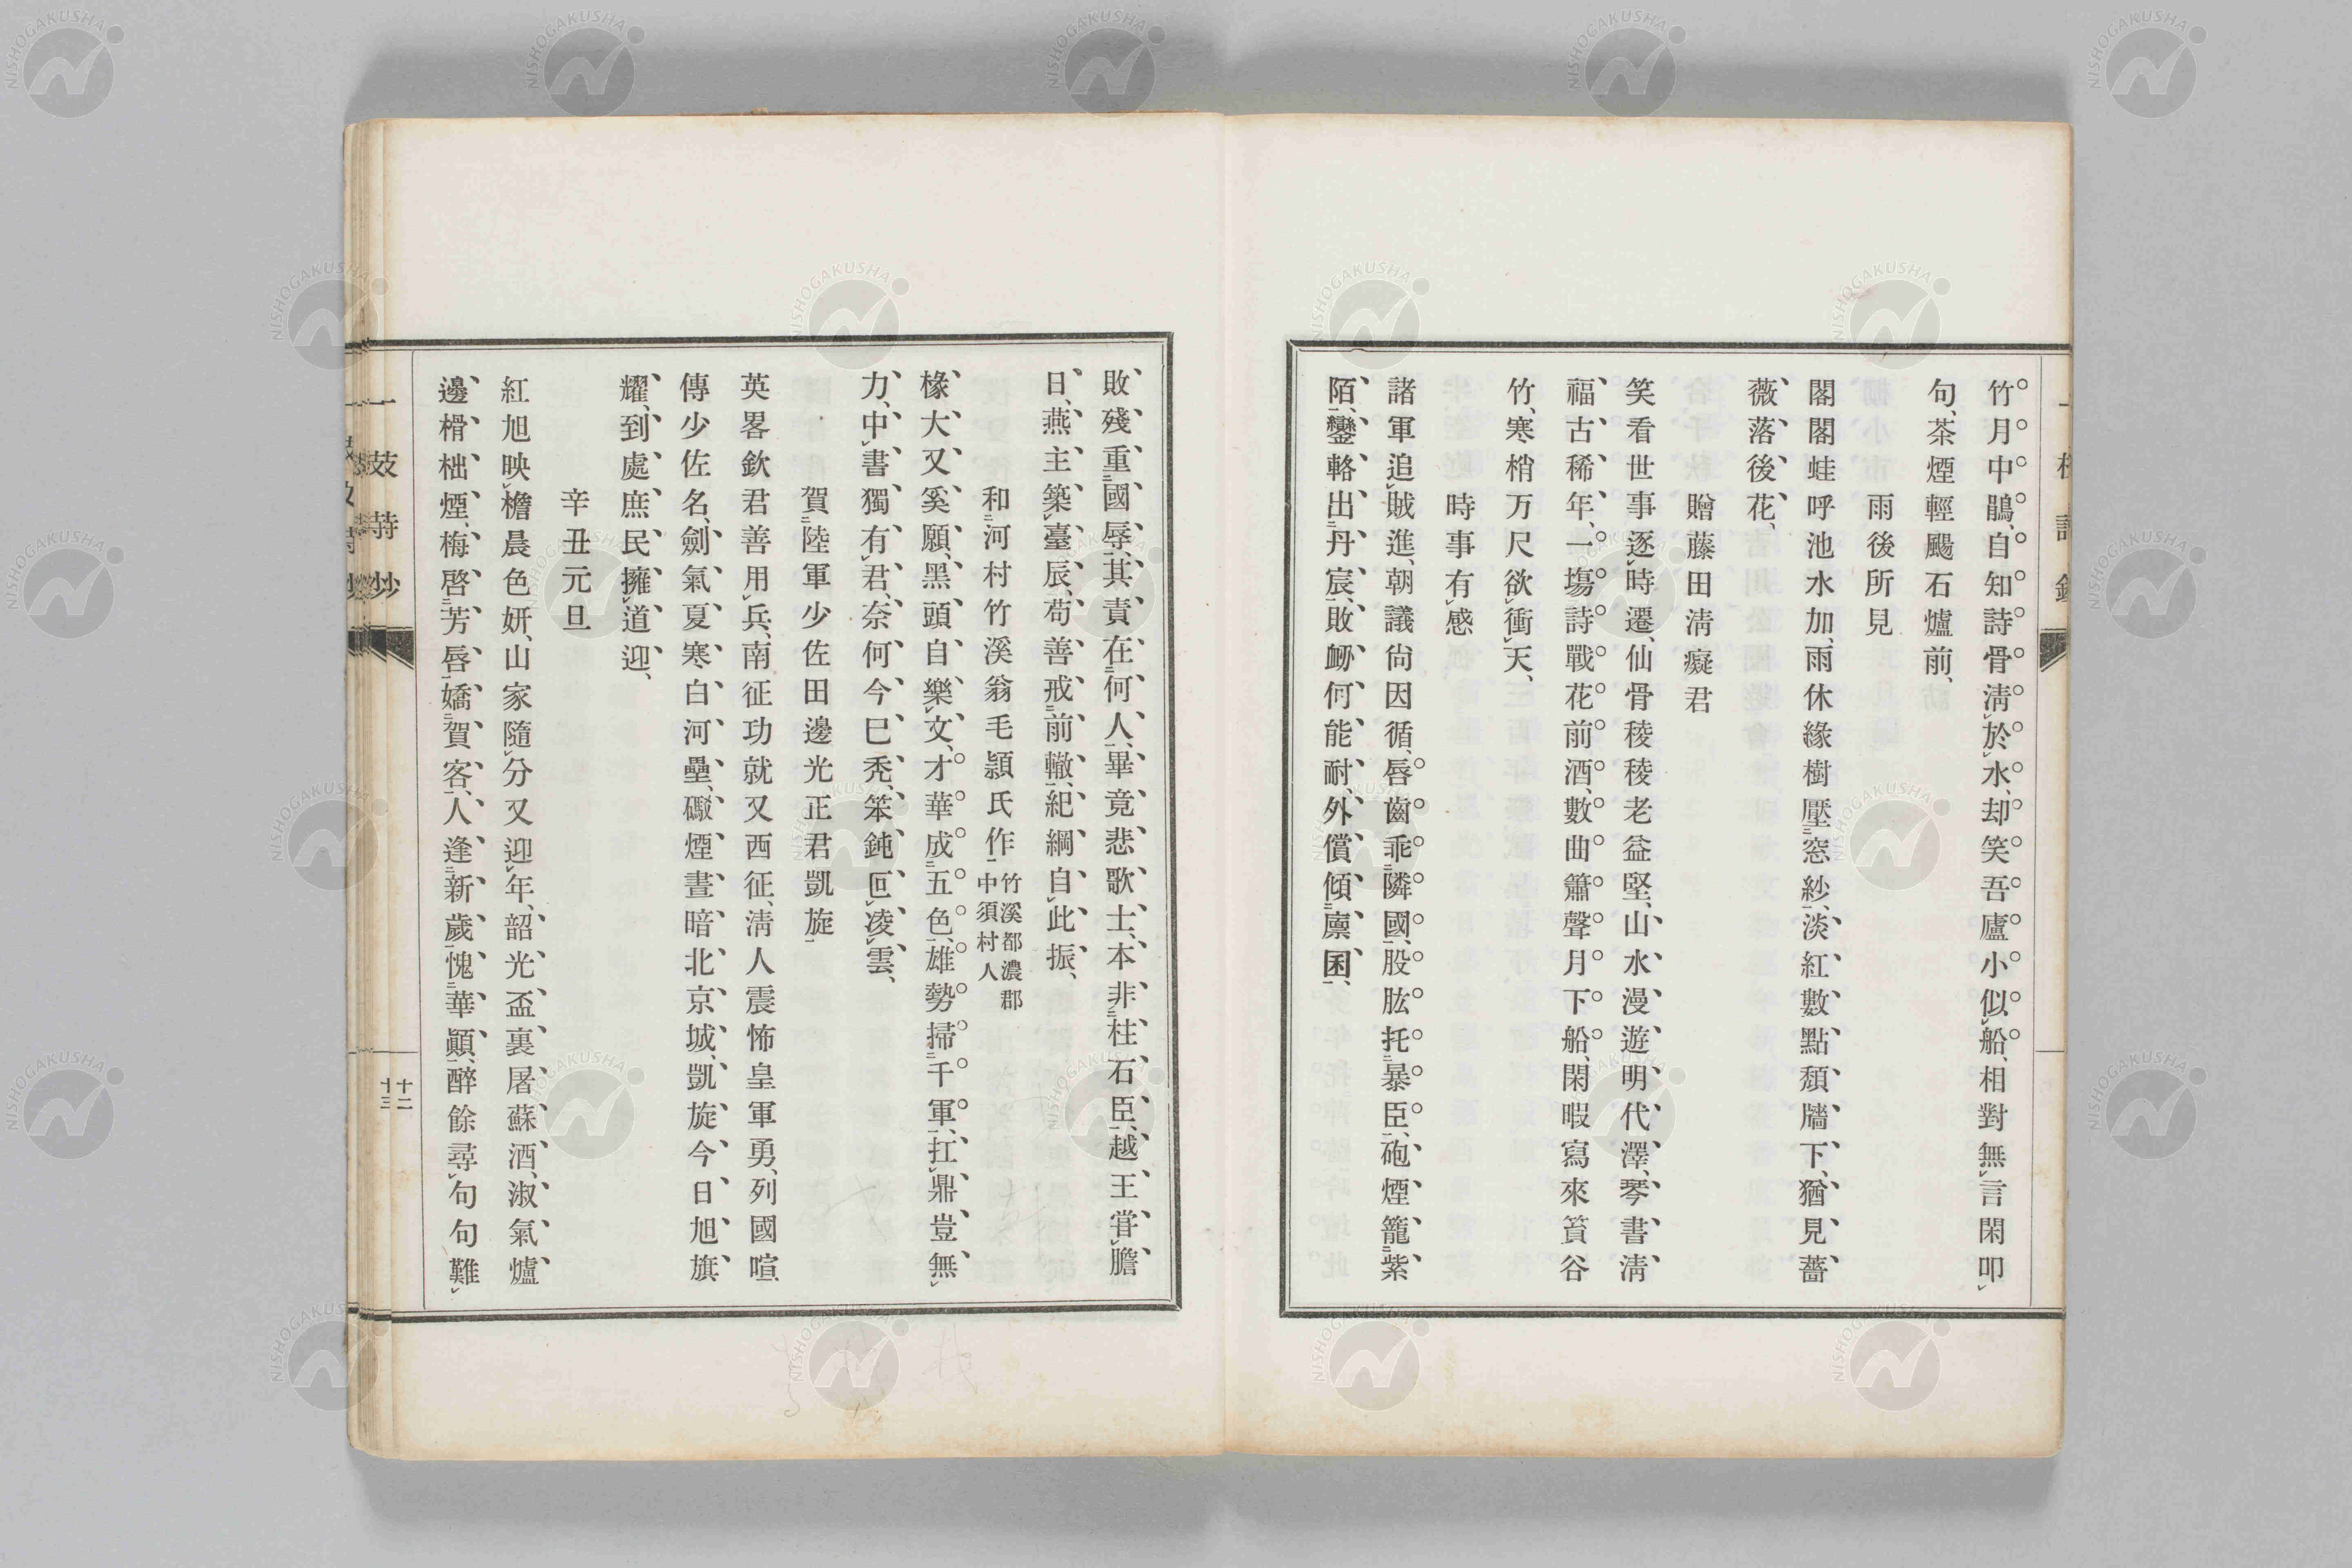 竹月中鵑、自知詩骨淸於水、却笑吾廬小似船、相對無言閑叩
句、茶煙輕颺石爐前、
雨後所見
閣閣蛙呼池水加、雨休緣樹壓窓紗、淡紅數點頽牆下、猶見薔
薇落後花、
贈藤田淸癡君
笑看世事逐時遷、仙骨稜稜老益堅、山水漫遊明代澤、琴書淸
福古稀年、一塲詩戰花前酒、數曲簫聲月下船、閑暇寫來篔谷
竹、寒梢万尺欲衝天、
時事有感
諸軍追賊進、朝議尙因循、唇齒乖隣國、股肱托暴臣、砲煙籠紫
陌、鑾輅出丹宸、敗衂何能耐、外償傾廩囷、
敗殘重國辱、其責在何人、畢竟悲歌士、本非柱石臣、越王甞膽
日、燕主築臺辰、苟善戒前轍、紀綱自此振、
和河村竹溪翁毛穎氏作
竹溪都濃郡
中須村人
椽大又奚願、黑頭自樂文、才華成五色、雄勢掃千軍、扛鼎豈無
力、中書獨有君、奈何今已禿、笨鈍叵凌雲、
賀陸軍少佐田邊光正君凱旋
英畧欽君善用兵、南征功就又西征、淸人震怖皇軍勇、列國喧
傳少佐名、劍氣夏寒白河壘、礮煙晝暗北京城、凱旋今日旭旗
耀、到處庶民擁道迎、
辛丑元旦
紅旭映檐晨色妍、山家隨分又迎年、韶光盃裏屠蘇酒、淑氣爐
邊榾柮煙、梅啓芳唇嬌賀客、人逢新歲愧華顚、醉餘尋句句難
十二
十三
NISHOGAKUSHA